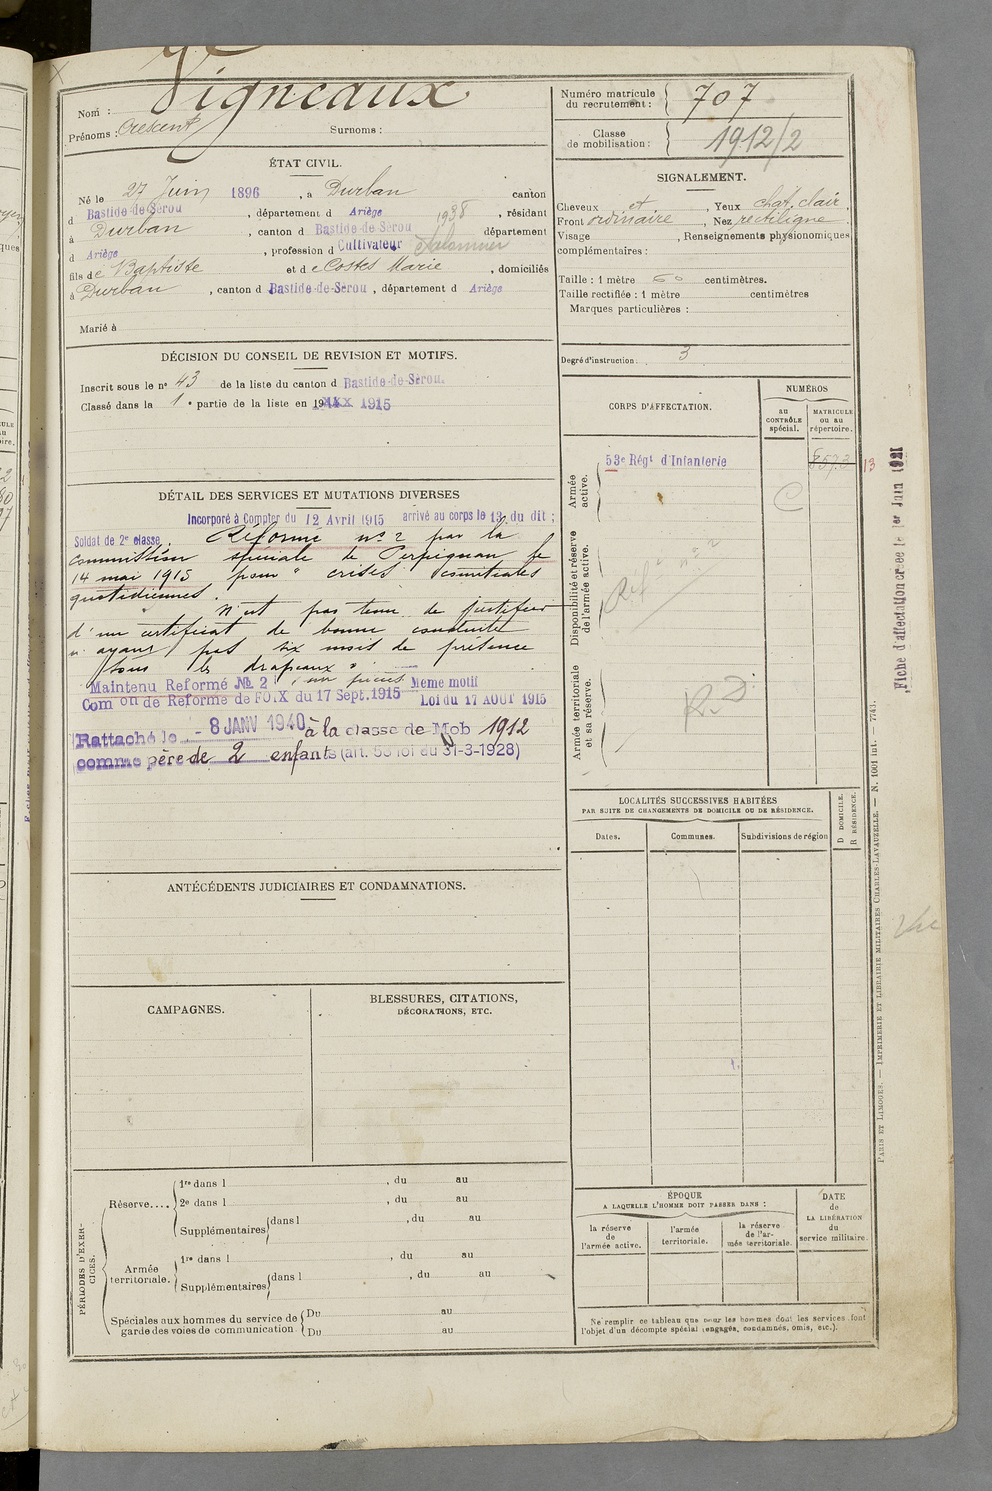 Nom : Vigneaux
Prénoms : Crescent Surnoms :
Numéro matricule du recrutement : 707
Classe de mobilisation : 1912/2
ÉTAT CIVIL.
Né le 27 Juin 1896, à Durban canton
d Bastide-de-Sérou, département d Ariège 1938, résidant
à Durban, canton d Bastide-de-Sérou département
d Ariège, profession d Cultivateur
fils de Baptiste et de Costes Marie, domiciliés
à Durban, canton d Bastide-de-Sérou, département d Ariège
Marié à
SIGNALEMENT.
Cheveux et, Yeux chat. clair,
Front ordinaire, Nez rectiligne
Visage , Renseignements physionomiques
complémentaires :
Taille : 1 mètre 60 centimètres.
Taille rectifiée : 1 mètre centimètres
Marques particulières :
Degré d'instruction : 3
DÉCISION DU CONSEIL DE REVISION ET MOTIFS.
Inscrit sous le nº 43 de la liste du canton d Bastide-de-Sérou.
Classé dans la 1e partie de la liste en 1915
CORPS D'AFFECTATION.
NUMÉROS
au CONTRÔLE spécial.
MATRICULE ou au répertoire.
Armée active.
53e Régt d'Infanterie
13
C
Disponibilité et réserve de l'armée active.
Réf nº 2
Armée territoriale et sa réserve.
R.D.
DÉTAIL DES SERVICES ET MUTATIONS DIVERSES
Incorporé à Compter du 12 Avril 1915 arrivé au corps le 13 du dit ;
Soldat de 2e classe. Réformé nº 2 par la
Commission spéciale de Perpignan le
14 mai 1915 pour " crises comitiales
quotidiennes.
N'est pas tenu de justifier
d'un certificat de bonne conduite
n'ayant pas six mois de présence
sous les drapeaux".
Maintenu Reformé № 2 sur pièces Meme motif
Com on de Réforme de FOIX du 17 Sept. 1915 Loi du 17 AOUT 1915
Rattaché le - 8 JANV 1940 à la classe de Mob 1912
comme père de 2 enfants (art. 58 loi du 31-3-1928)
ANTÉCÉDENTS JUDICIAIRES ET CONDAMNATIONS.
CAMPAGNES.
BLESSURES, CITATIONS,
DÉCORATIONS, ETC.
LOCALITÉS SUCCESSIVES HABITÉES
PAR SUITE DE CHANGEMENTS DE DOMICILE OU DE RÉSIDENCE.
Dates. Communes. Subdivisions de région
D DOMICILE.
R RÉSIDENCE.
PÉRIODES D'EXERCICES.
Réserve....
1re dans l , du au
2e dans l , du au
Supplémentaires dans l , du au
Armée territoriale.
1re dans l , du au
Supplémentaires dans l , du au
Spéciales aux hommes du service de garde des voies de communication.
Du au
Du au
ÉPOQUE
A LAQUELLE L'HOMME DOIT PASSER DANS :
la réserve de l'armée active.
l'armée territoriale.
la réserve de l'armée territoriale.
DATE de LA LIBÉRATION du service militaire.
Ne remplir ce tableau que pour les hommes dont les services font
l'objet d'un décompte spécial (engagés, condamnés, omis, etc.).
Fiche d'affectation créée le 1er Juin 1921
PARIS ET LIMOGES. — IMPRIMERIE ET LIBRAIRIE MILITAIRES CHARLES-LAVAUZELLE. — N. 1001 int. — 7743.